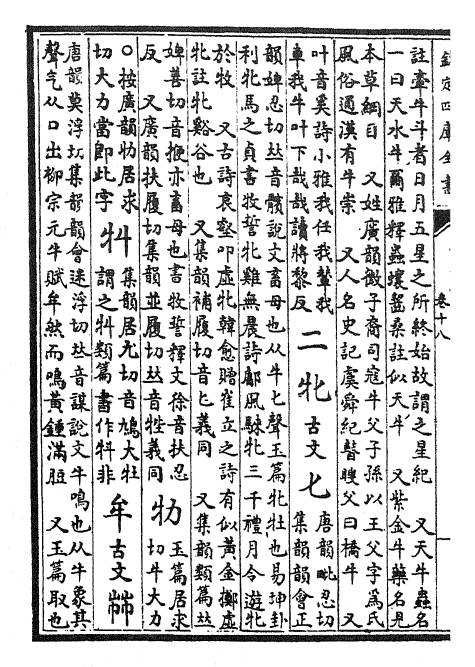 欽定四庫全書
卷十八
註牽牛斗者日月五星之所終始故謂之星紀　又天牛蟲名
一曰天水牛爾雅釋蟲蠰齧桑註似天牛　又紫金牛藥名見
本草綱目　又姓廣韻微子裔司寇牛父子孫以王父字爲氏
風俗通漢有牛崇　又人名史記虞舜紀瞽瞍父曰橋牛　又
叶音奚詩小雅我任我輦我
車我牛叶下哉哉讀將黎反
二
牝
古文
匕
唐韻毗忍切
集韻韻會正
韻婢忍切𠀤音髕說文畜母也从牛匕聲玉篇牝牡也易坤卦
利牝馬之貞書牧誓牝雞無晨詩鄘風騋牝三千禮月令遊牝
於牧　又古詩哀壑叩虛牝韓愈贈崔立之詩有似黃金擲虛
牝註牝谿谷也　又集韻補履切音匕義同　又集韻類篇𠀤
婢善切音楩亦畜母也書牧誓釋文徐音扶忍
反　又廣韻扶履切集韻並履切𠀤音牲義同
牞
玉篇居求
切牛大力
○按廣韻牞居求
切大力當即此字
集韻居尤切音鳩大牡
牟
古文
唐韻莫浮切集韻韻會迷浮切𠀤音謀說文牛鳴也从牛象其
聲气从口出柳宗元牛賦牟然而鳴黃鍾滿脰　又玉篇取也